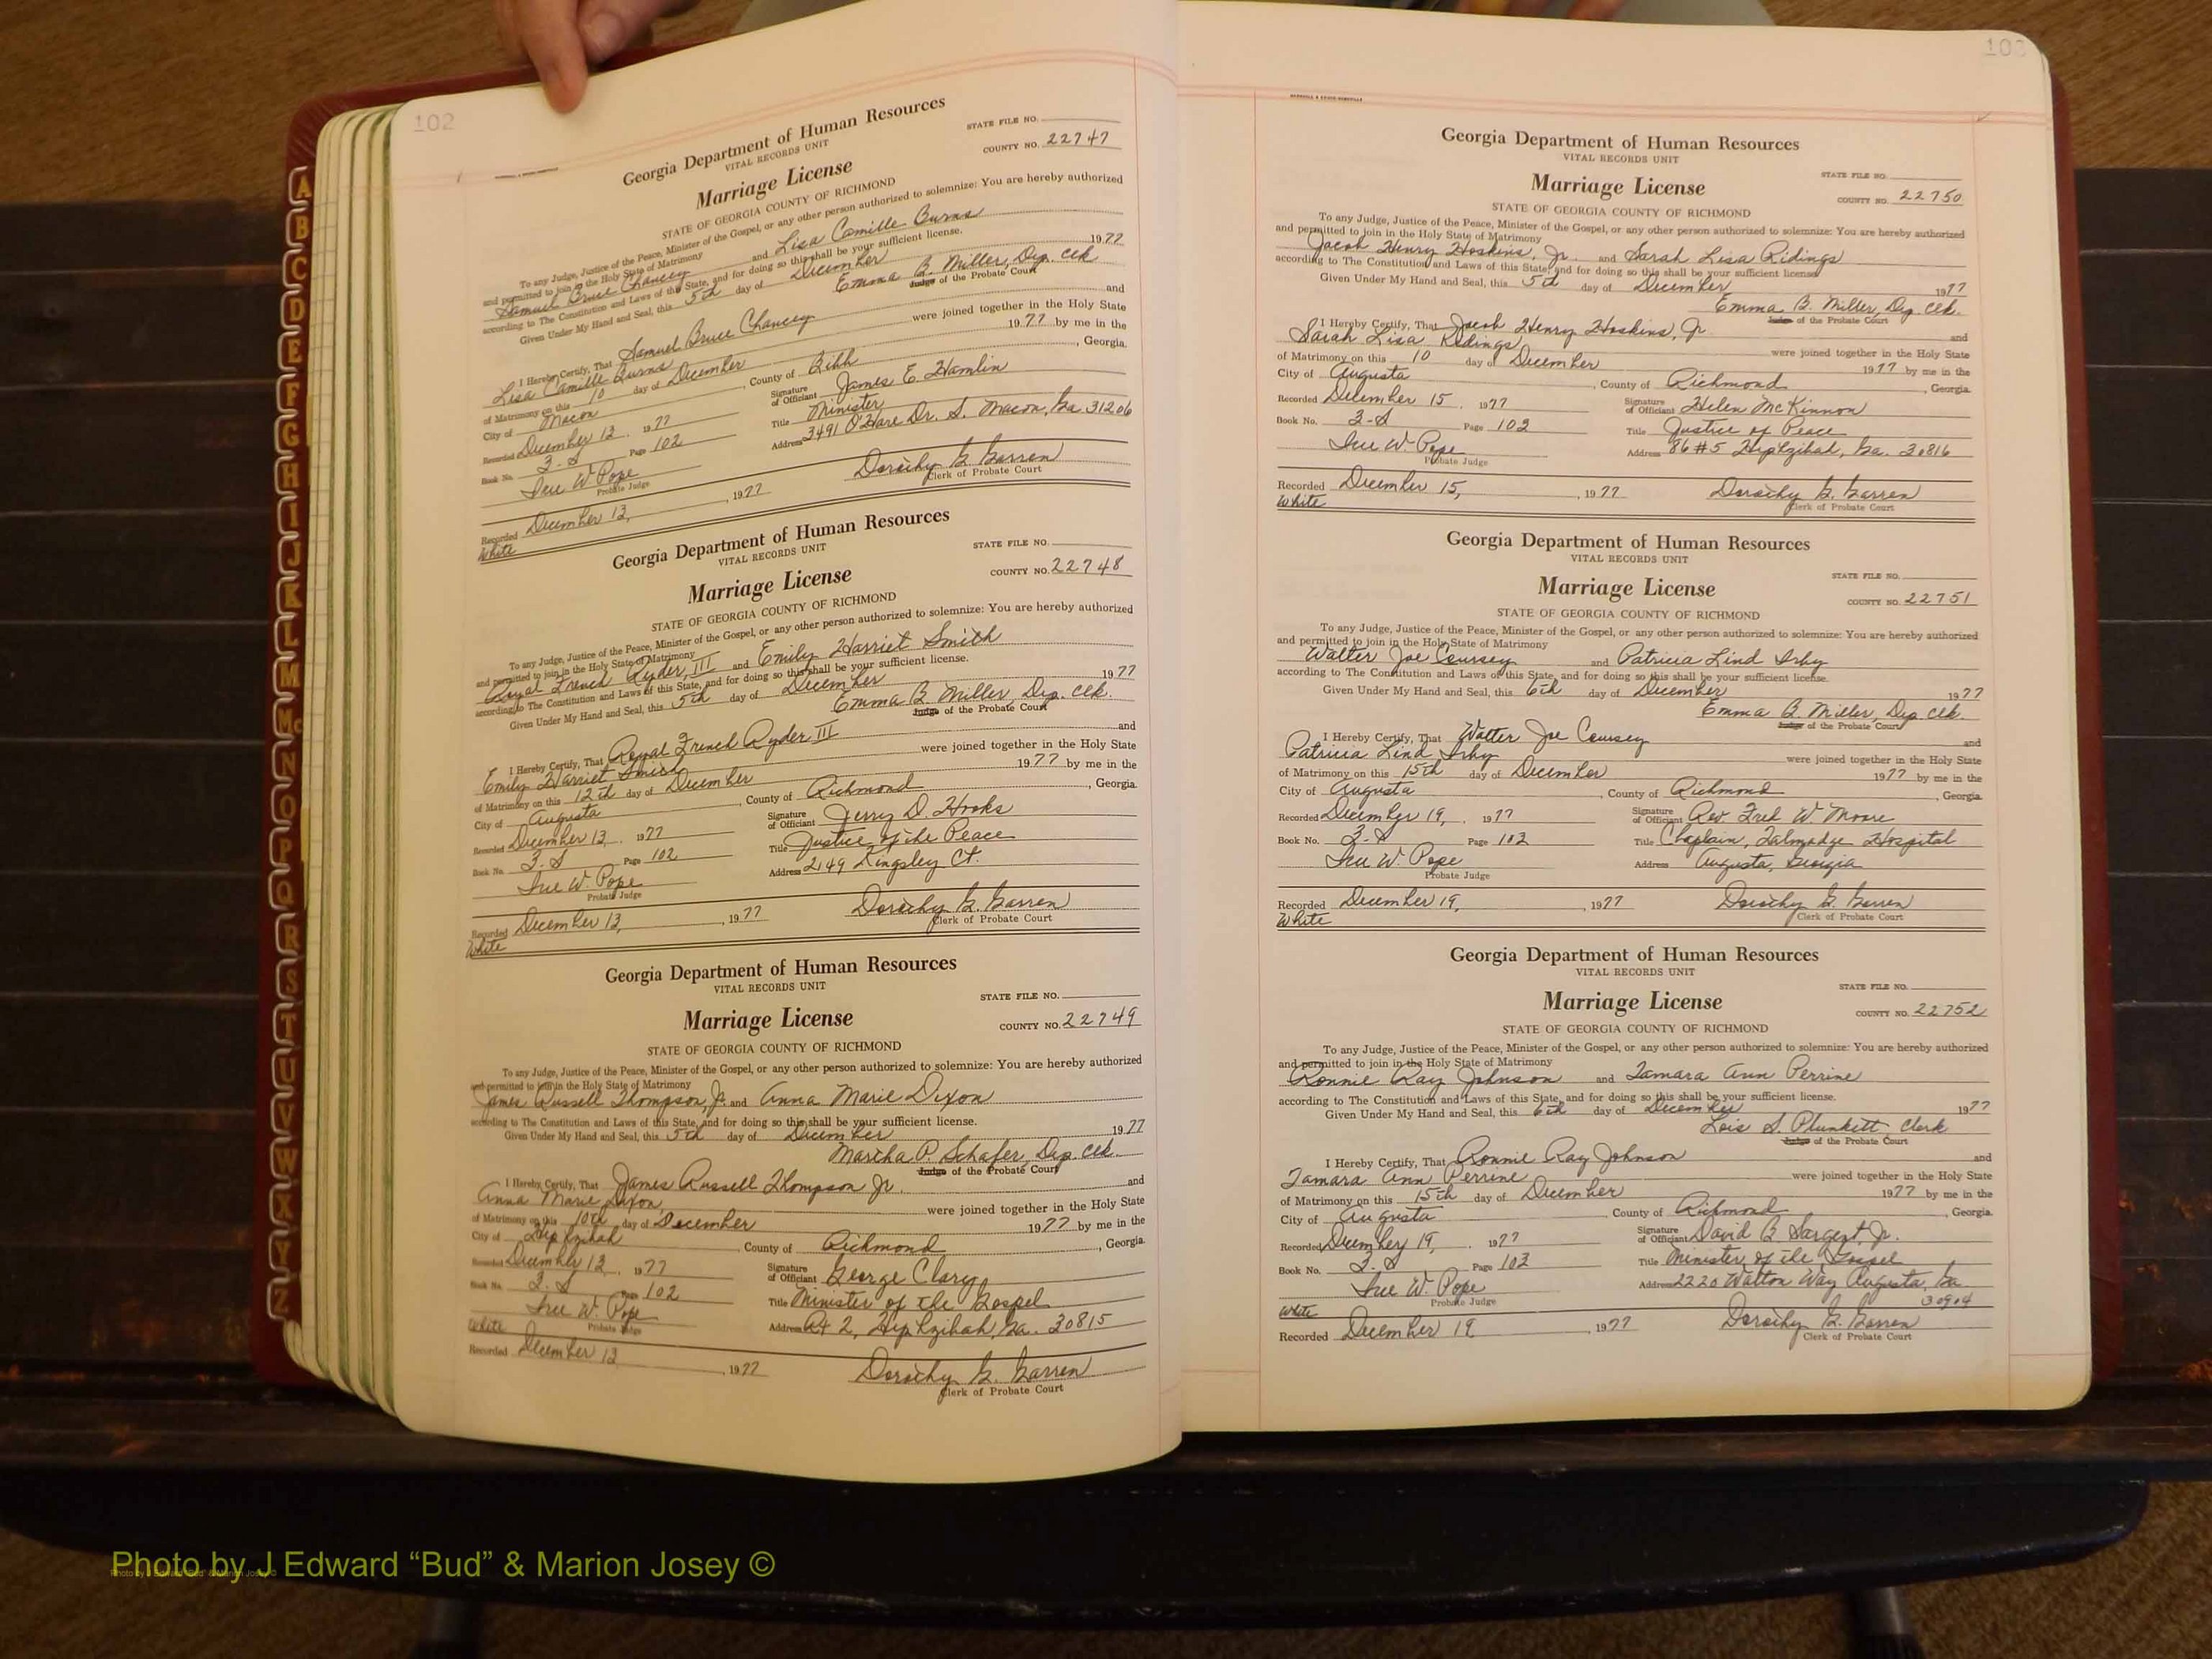 102
Georgia Department of Human Resources
VITAL RECORDS UNIT
STATE FILE NO.
Marriage License
COUNTY NO. 22747
STATE OF GEORGIA COUNTY OF RICHMOND
To any Judge, Justice of the Peace, Minister of the Gospel, or any other person authorized to solemnize: You are hereby authorized
and permitted to join in the Holy State of Matrimony
Samuel Bruce Chancey and Lisa Camille Burns
according to The Constitution and Laws of this State, and for doing so this shall be your sufficient license.
Given Under My Hand and Seal, this 5th day of December 1977
Emma B. Miller, Dep. Clk
Judge of the Probate Court
I Hereby Certify, That Samuel Bruce Chancey and
Lisa Camille Burns were joined together in the Holy State
of Matrimony on this 10 day of December 1977 by me in the
City of Macon, County of Bibb, Georgia.
Recorded December 13, 1977 Signature of Officiant James E. Hamlin
Book No. 3-S Page 102 Title Minister
Address 3491 O'Hare Dr. S. Macon, Ga. 31206
Irue W. Pope
Probate Judge
Dorothy G. Garren
Recorded December 13, 1977 Clerk of Probate Court
White
Georgia Department of Human Resources
VITAL RECORDS UNIT
STATE FILE NO.
Marriage License
COUNTY NO. 22748
STATE OF GEORGIA COUNTY OF RICHMOND
To any Judge, Justice of the Peace, Minister of the Gospel, or any other person authorized to solemnize: You are hereby authorized
and permitted to join in the Holy State of Matrimony
Royal French Ryder, III and Emily Harriet Smith
according to The Constitution and Laws of this State, and for doing so this shall be your sufficient license.
Given Under My Hand and Seal, this 5th day of December 1977
Emma B. Miller, Dep. Clk.
Judge of the Probate Court
I Hereby Certify, That Royal French Ryder III and
Emily Harriet Smith were joined together in the Holy State
of Matrimony on this 12th day of December 1977 by me in the
City of Augusta, County of Richmond, Georgia.
Recorded December 13, 1977 Signature of Officiant Jerry D. Hooks
Book No. 3-S Page 102 Title Justice of the Peace
Irue W. Pope Address 2149 Kingsley Ct.
Probate Judge
Dorothy G. Garren
Recorded December 13, 1977 Clerk of Probate Court
White
Georgia Department of Human Resources
VITAL RECORDS UNIT
STATE FILE NO.
Marriage License
COUNTY NO. 22749
STATE OF GEORGIA COUNTY OF RICHMOND
To any Judge, Justice of the Peace, Minister of the Gospel, or any other person authorized to solemnize: You are hereby authorized
and permitted to join in the Holy State of Matrimony
James Russell Thompson, Jr. and Anna Marie Dixon
according to The Constitution and Laws of this State, and for doing so this shall be your sufficient license.
Given Under My Hand and Seal, this 5th day of December 1977
Martha P. Schafer, Dep. Clk.
Judge of the Probate Court
I Hereby Certify, That James Russell Thompson Jr. and
Anna Marie Dixon were joined together in the Holy State
of Matrimony on this 10th day of December 1977 by me in the
City of Hephzibah, County of Richmond, Georgia.
Recorded December 13, 1977 Signature of Officiant George Clary
Book No. 3-S Page 102 Title Minister of the Gospel
Irue W. Pope Address Rt 2, Hephzibah, Ga. 30815
White Probate Judge
Recorded December 13 1977 Dorothy G. Garren
Clerk of Probate Court
103
Georgia Department of Human Resources
VITAL RECORDS UNIT
STATE FILE NO.
Marriage License
COUNTY NO. 22750
STATE OF GEORGIA COUNTY OF RICHMOND
To any Judge, Justice of the Peace, Minister of the Gospel, or any other person authorized to solemnize: You are hereby authorized
and permitted to join in the Holy State of Matrimony
Jacob Henry Hoskins, Jr. and Sarah Lisa Ridings
according to The Constitution and Laws of this State, and for doing so this shall be your sufficient license.
Given Under My Hand and Seal, this 5th day of December 1977
Emma B. Miller, Dep Clk.
Judge of the Probate Court
I Hereby Certify, That Jacob Henry Hoskins, Jr and
Sarah Lisa Ridings were joined together in the Holy State
of Matrimony on this 10 day of December 1977 by me in the
City of Augusta, County of Richmond, Georgia.
Recorded December 15, 1977 Signature of Officiant Helen McKinnon
Book No. 3-S Page 103 Title Justice of Peace
Irue W. Pope Address 86 #5 Hephzibah, Ga. 30816
Probate Judge
Recorded December 15, 1977 Dorothy G. Garren
White Clerk of Probate Court
Georgia Department of Human Resources
VITAL RECORDS UNIT
STATE FILE NO.
Marriage License
COUNTY NO. 22751
STATE OF GEORGIA COUNTY OF RICHMOND
To any Judge, Justice of the Peace, Minister of the Gospel, or any other person authorized to solemnize: You are hereby authorized
and permitted to join in the Holy State of Matrimony
Walter Joe Coursey and Patricia Lind Irby
according to The Constitution and Laws of this State, and for doing so this shall be your sufficient license.
Given Under My Hand and Seal, this 6th day of December 1977
Emma B. Miller, Dep Clk.
Judge of the Probate Court
I Hereby Certify, That Walter Joe Coursey and
Patricia Lind Irby were joined together in the Holy State
of Matrimony on this 15th day of December 1977 by me in the
City of Augusta, County of Richmond, Georgia.
Recorded December 19, 1977 Signature of Officiant Rev. Fred W. Moore
Book No. 3-S Page 103 Title Chaplain, Talmadge Hospital
Irue W. Pope Address Augusta, Georgia
Probate Judge
Recorded December 19, 1977 Dorothy G. Garren
White Clerk of Probate Court
Georgia Department of Human Resources
VITAL RECORDS UNIT
STATE FILE NO.
Marriage License
COUNTY NO. 22752
STATE OF GEORGIA COUNTY OF RICHMOND
To any Judge, Justice of the Peace, Minister of the Gospel, or any other person authorized to solemnize: You are hereby authorized
and permitted to join in the Holy State of Matrimony
Ronnie Ray Johnson and Tamara Ann Perrine
according to The Constitution and Laws of this State, and for doing so this shall be your sufficient license.
Given Under My Hand and Seal, this 6th day of December 1977
Lois S. Plunkett, Clerk
Judge of the Probate Court
I Hereby Certify, That Ronnie Ray Johnson and
Tamara Ann Perrine were joined together in the Holy State
of Matrimony on this 15th day of December 1977 by me in the
City of Augusta, County of Richmond, Georgia.
Recorded December 19, 1977 Signature of Officiant David B Sargent, Jr.
Book No. 3-S Page 103 Title Minister of the Gospel
Irue W. Pope Address 2220 Walton Way Augusta, Ga
Probate Judge 30904
White
Recorded December 19 1977 Dorothy G. Garren
Clerk of Probate Court
A
B
C
D
E
F
G
H
I
J
K
L
M
Mc
N
O
P
Q
R
S
T
U
V
W
X
Y
Z
Photo by J Edward “Bud” & Marion Josey ©
Photo by J Edward “Bud” & Marion Josey ©